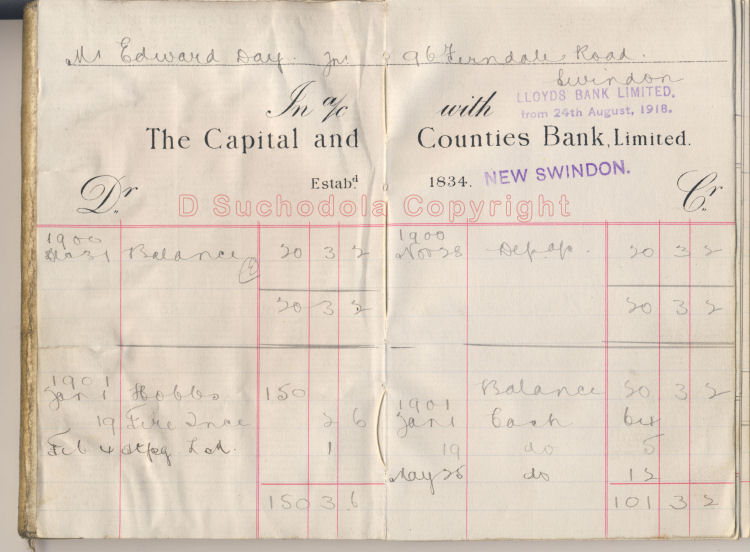 Mr Edward Day. Jnr. 96 Ferndale Road.
Swindon
In a/c with
LLOYDS BANK LIMITED.
from 24th August, 1918.
The Capital and Counties Bank, Limited.
Estabd. 1834.
NEW SWINDON.
Dr. Cr.
D Suchodola Copyright
1900 1900
Balance 20 3 2 Nov 28 20 3 2
20 3 2 20 3 2
Balance 20 3 2
1901 1901
Jan 1 Hobbs 150 Jan 1 Cash
19 Fire Ince 2 6 19 do 5
Feb 4 1 May 25 do 12
150 3 6 101 3 2